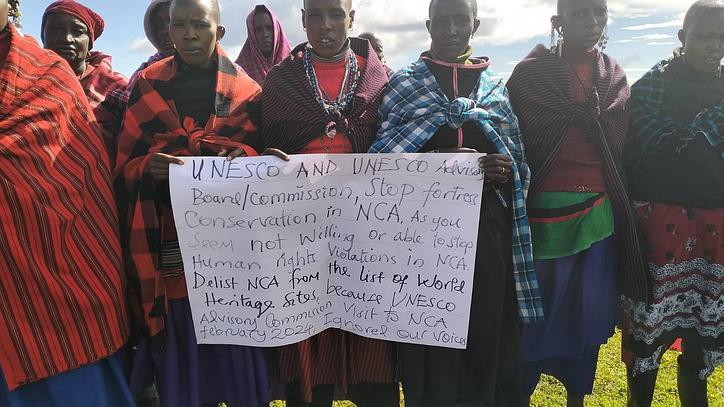 UNESCO AND UNESCO Advisory
Board/commission, Stop fortress
Conservation in NCA. As you
Seem not Willing or able to stop
Human rights Violations in NCA
Delist NCA from the list of World
Heritage Sites, because UNESCO
Advisory Commission Visit to NCA
february 2024 Ignored our Voices